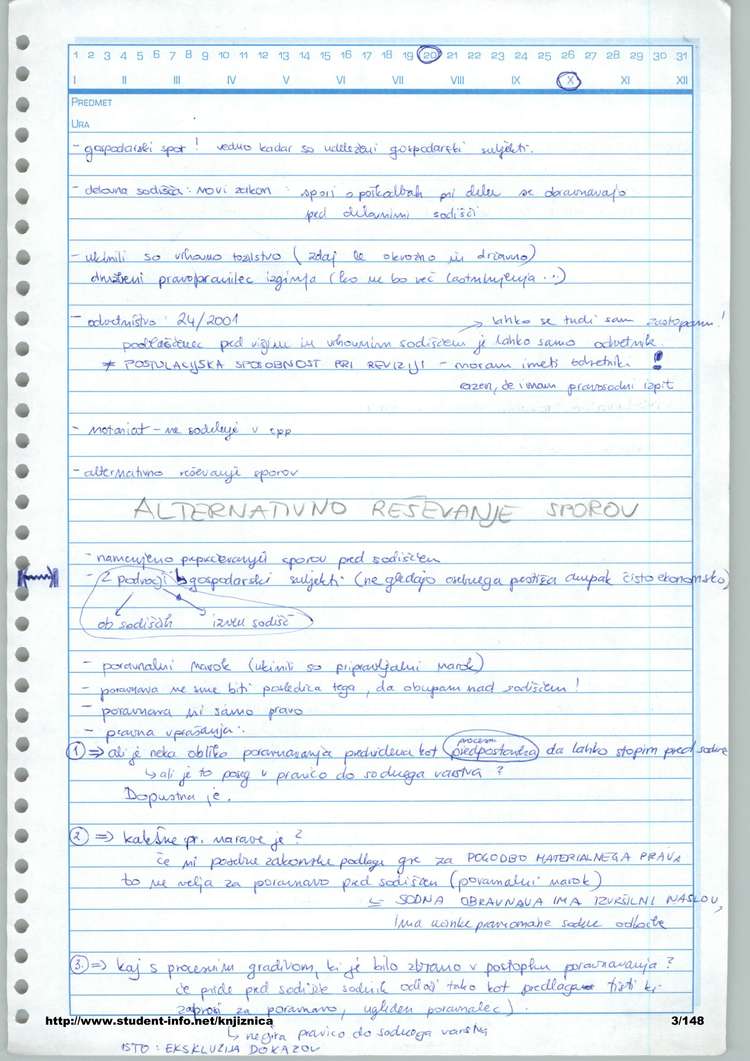 1 2 3 4 5 6 7 8 9 10 11 12 13 14 15 16 17 18 19 20 21 22 23 24 25 26 27 28 29 30 31
I II III IV V VI VII VIII IX X XI XII
PREDMET
URA
- gospodarski spor! vedno kadar so udeleženi gospodarski subjekti.
- delovna sodišča: novi zakon: spori o poškodbah pri delu se obravnavajo
pred delovnimi sodišči
- ukinili so vrhovno tožilstvo (zdaj le okrožno in državno)
družbeni pravobranilec izginja (ko ne bo več lastninjenja ...)
- odvetništvo: 24/2001 → lahko se tudi sam zastopam!
pooblaščenec pred višjim in vrhovnim sodiščem je lahko samo odvetnik.
* POSTULACIJSKA SPOSOBNOST PRI REVIZIJI - moram imeti odvetnika !
razen, če imam pravosodni izpit
- notariat - ne sodeluje v cpp
- alternativno reševanje sporov
ALTERNATIVNO REŠEVANJE SPOROV
- namenjeno preprečevanju sporov pred sodiščem
- 2 področji ↳ gospodarski subjekti (ne gledajo osebnega prestiža ampak čisto ekonomsko)
ob sodiščih izven sodišč
- poravnalni narok (ukinili so pripravljalni narok)
- poravnava ne sme biti posledica tega, da obupam nad sodiščem!
- poravnava ni samo pravo
- pravna vprašanja:
1 ⇒ ali je neka oblika poravnavanja predvidena kot procesna predpostavka da lahko stopim pred sodišče
↳ ali je to poseg v pravico do sodnega varstva?
Dopustna je.
2 ⇒ kakšne pr. narave je?
če ni posebne zakonske podlage gre za POGODBO MATERIALNEGA PRAVA
to ne velja za poravnavo pred sodiščem (poravnalni narok)
↳ SODNA OBRAVNAVA IMA IZVRŠILNI NASLOV,
ima učinke pravnomočne sodne odločbe
3. ⇒ kaj s procesnim gradivom, ki je bilo zbrano v postopku poravnavanja?
če pride pred sodišče sodnik odloči tako kot predlaga tisti ki
zaprosi za poravnavo, ugleden poravnalec).
↳ negira pravico do sodnega varstva
ISTO: EKSKLUZIJA DOKAZOV
http://www.student-info.net/knjiznica 3/148